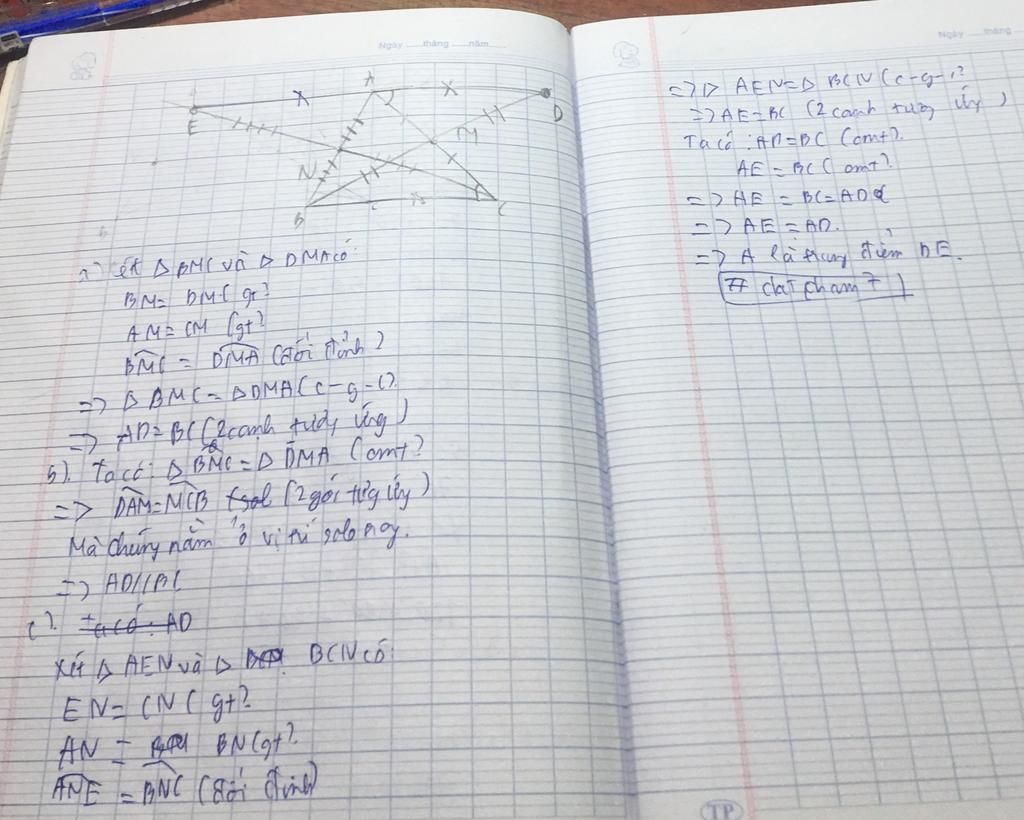 Ngày ..... tháng ..... năm .....
A
E
D
M
N
B
C
a) Xét Δ BMC và Δ DMA có:
BM = DM ( gt)
AM = CM (gt)
BMC = DMA (đối đỉnh)
=> Δ BMC = Δ DMA ( c-g-c).
=> AD = BC (2 cạnh tương ứng)
b). Ta có: Δ BMC = Δ DMA (cmt)
=> DAM = MCB (2 góc tương ứng)
Mà chúng nằm ở vị trí
=> AD//BC
c). Ta có: AD
Xét Δ AEN và Δ BCN có:
EN = CN ( gt)
AN = BN (gt)
ANE = BNC (đối đỉnh)
Ngày ..... tháng
=> Δ AEN = Δ BCN ( c-g-c)
=> AE = BC (2 cạnh tương ứng)
Ta có: AD = BC (cmt).
AE = BC ( cmt)
=> AE = BC = AD
=> AE = AD.
=> A là trung điểm DE.
TP